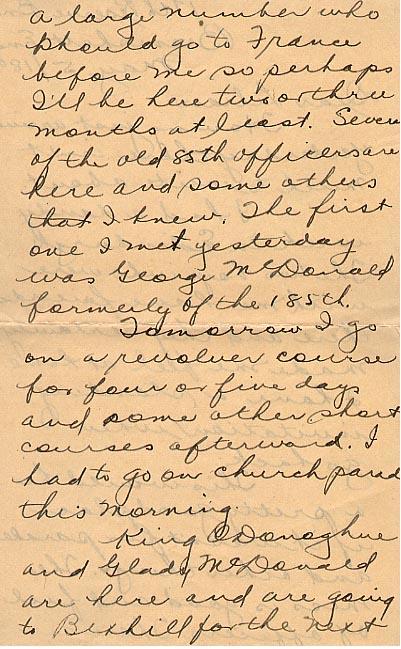 a large number who
should go to France
before me so perhaps
I'll be here two or three
months at least. Seven
of the old 85th officers are
here and some others
that I knew. The first
one I met yesterday
was George McDonald
formerly of the 185th.
Tomorrow I go
on a revolver course
for four or five days
and some other short
courses afterward. I
had to go on church parad
this morning.
King O'Donoghue
and Glady McDonald
are here and are going
to Bexhill for the next